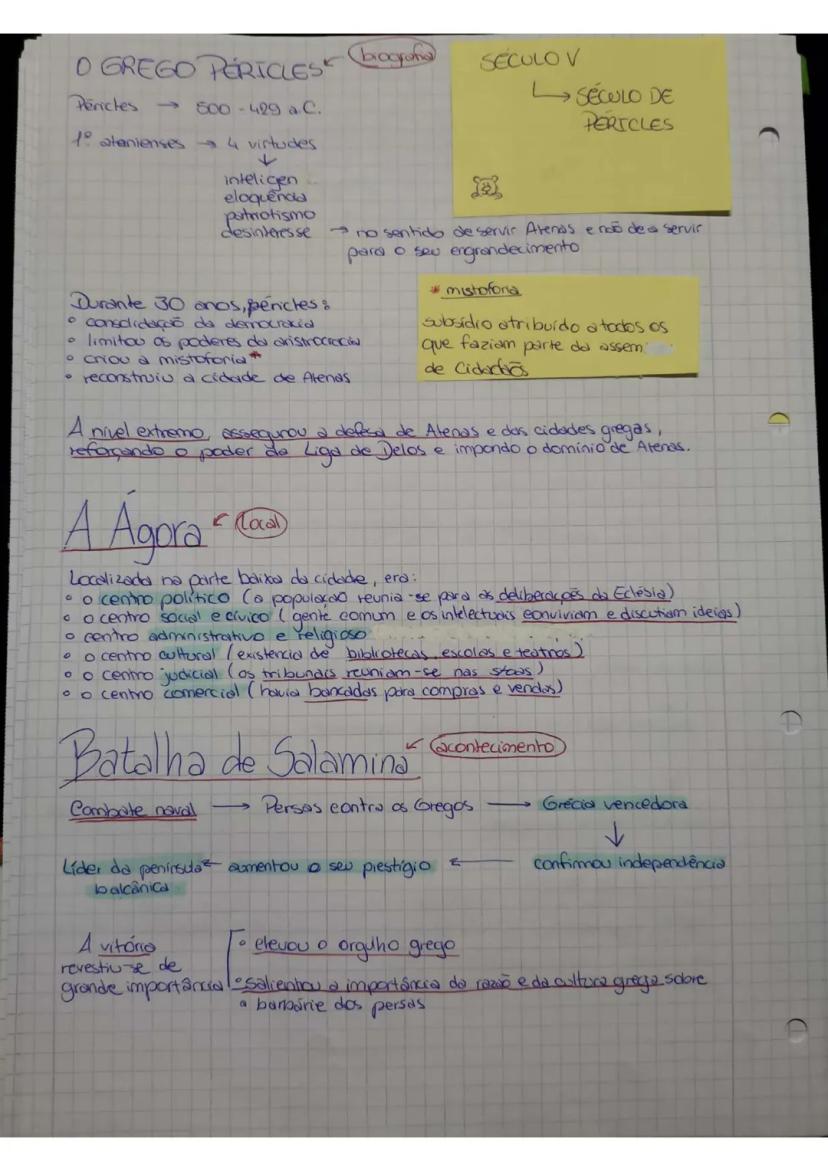 O GREGO PÉRICLES
biografia
SÉCULO V
SÉCULO DE
PÉRICLES
Péricles → 500 - 429 a.C.
1º atenienses → 4 virtudes
inteligen
eloquência
patriotismo
desinteresse → no sentido de servir Atenas e não de a servir
para o seu engrandecimento
Durante 30 anos, péricles:
• consolidação da democracia
• limitou os poderes da aristrocracia
• criou a mistoforia*
• reconstruiu a cidade de Atenas
* mistoforia
subsídio atribuído a todos os
que faziam parte da assem
de Cidadãos
A nível extremo, assegurou a defesa de Atenas e das cidades gregas,
reforçando o poder da Liga de Delos e impondo o domínio de Atenas.
A Ágora
local
Localizada na parte baixa da cidade, era:
• o centro político (a população reunia-se para as deliberações da Eclésia)
• o centro social e cívico (gente comum e os intelectuais conviviam e discutiam ideias)
• o centro administrativo e religioso
• o centro cultural (existencia de bibliotecas, escolas e teatros)
• o centro judicial (os tribunais reuniam-se nas stoas)
• o centro comercial (havia bancadas para compras e vendas)
Batalha de Salamina
acontecimento
Combate naval → Persas contra os Gregos → Grécia vencedora
Líder da península ← aumentou o seu prestígio ← confirmou independência
balcânica
A vitória
revestiu-se de
grande importância
• elevou o orgulho grego
• salientou a importância da razão e da cultura grega sobre
a barbárie dos persas